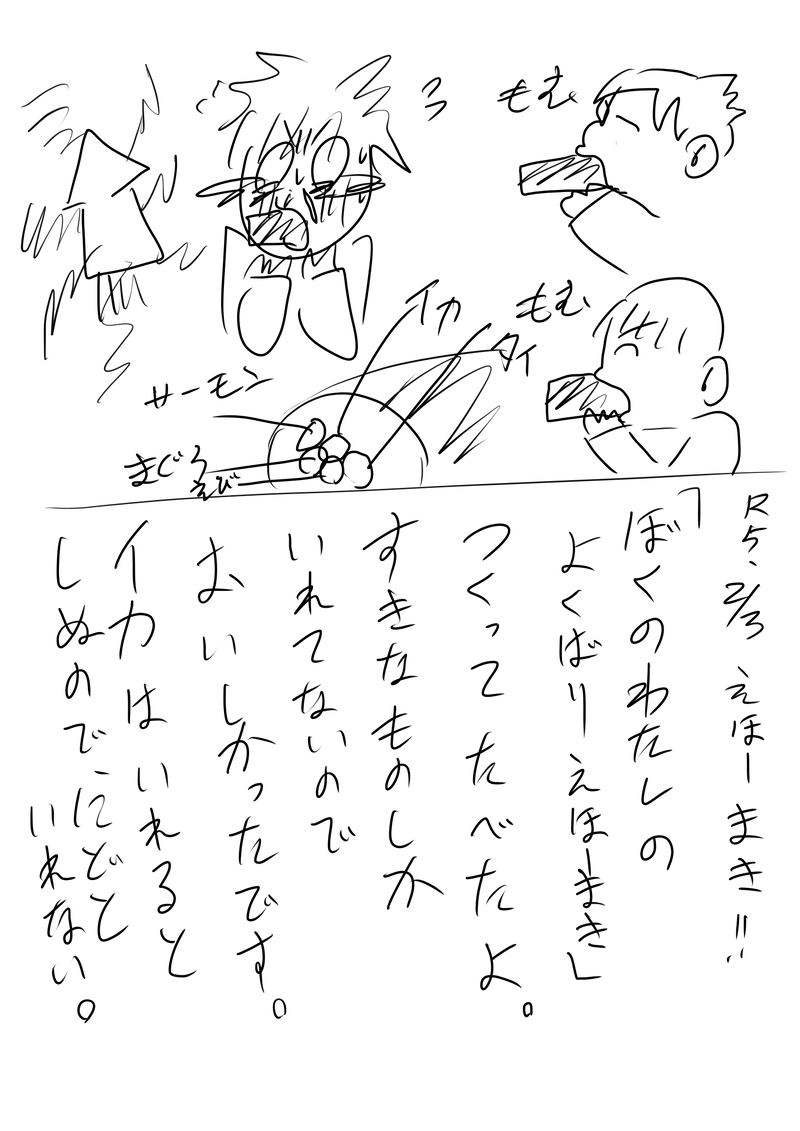 もむ
もむ
イカ
タイ
サーモン
まぐろ
えび
R5、2/3 えほーまき!!
「ぼくのわたしの
よくばりえほーまき」
つくってたべたよ。
すきなものしか
いれてないので
おいしかったです。
イカはいれると
しぬので、にどと
いれない。